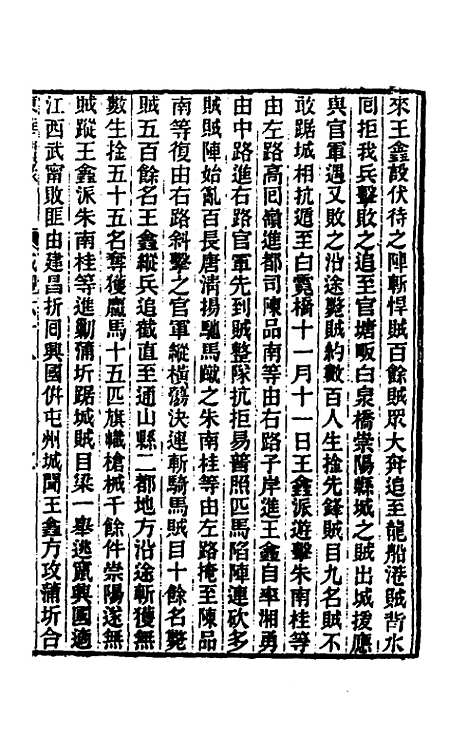 來王鑫設伏待之陣斬悍賊百餘賊眾大奔追至龍船港賊背水
囘拒我兵擊敗之追至官塘畈白泉橋崇陽縣城之賊出城援應
與官軍遇又敗之沿途斃賊約數百人生捡先鋒賊目九名賊不
敢踞城相抗遁至白霓橋十一月十一日王鑫派遊擊朱南桂等
由左路高囘嶺進都司陳品南等由右路子岸進王鑫自率湘勇
由中路進右路官軍先到賊整隊抗拒易普照匹馬陷陣連砍多
賊賊陣始亂百長唐淸揚驅馬蹴之朱南桂等由左路掩至陳品
南等復由右路斜擊之官軍縱橫蕩決連斬騎馬賊目十餘名斃
賊五百餘名王鑫縱兵追截直至通山縣二都地方沿途斬獲無
數生捡五十五名奪獲驘馬十五匹旗幟槍械千餘件崇陽遂無
賊蹤王鑫派朱南桂等進剿蒲圻踞城賊目梁一舉逃竄興國適
江西武甯敗匪由建昌折囘興國倂屯州城聞王鑫方攻蒲圻合